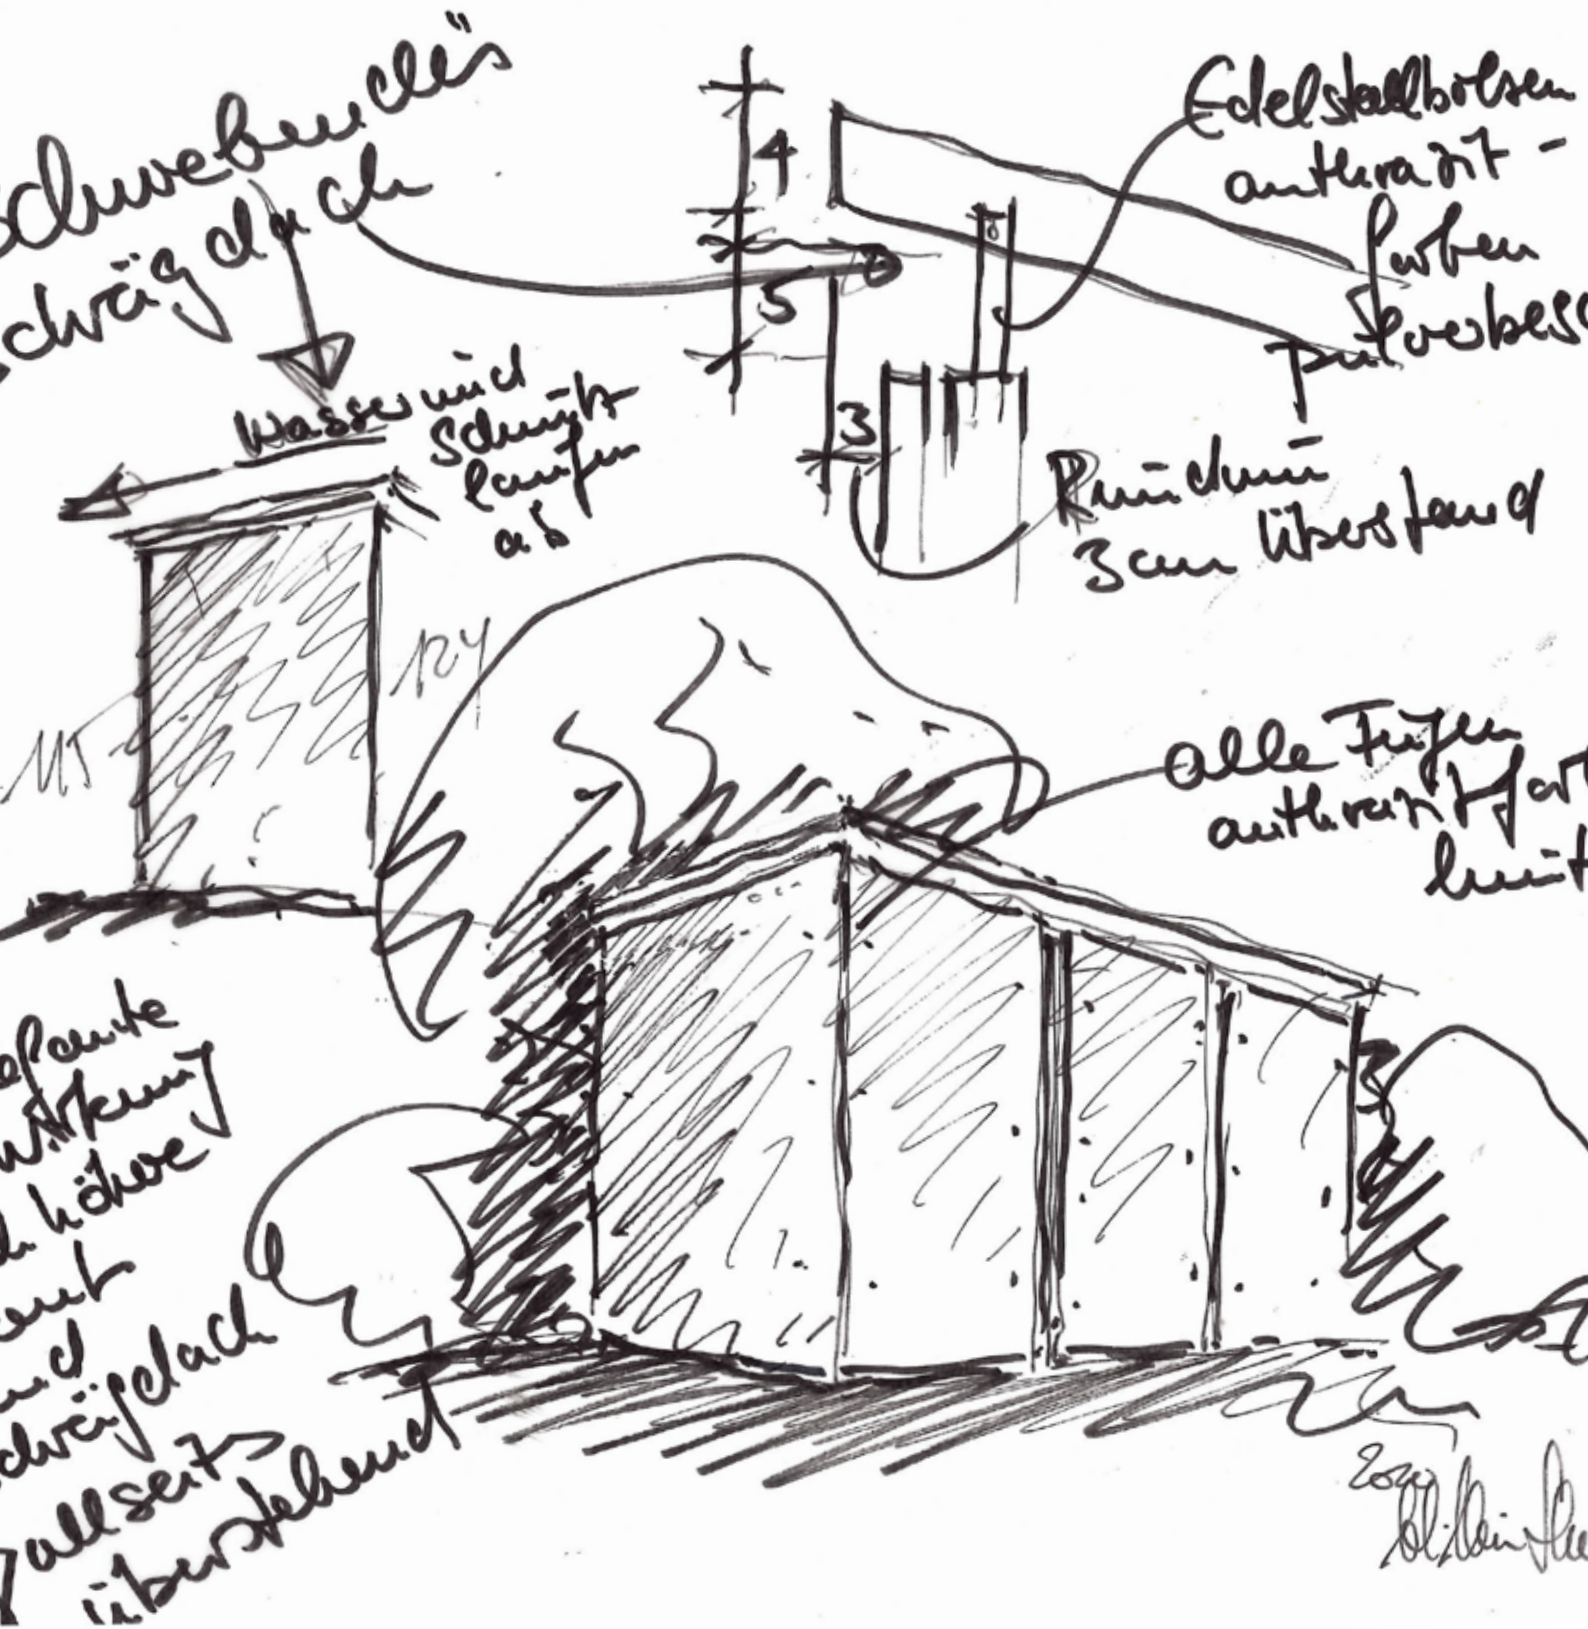 Schwebendes
Schrägdach
4
5
3
Edelstahlbolzen
anthrazit-
farben
pulverbesc
Wasser und
Schmutz
laufen
ab
Rundum
3cm Überstand
115
124
alle Fugen
anthrazitfar
hint
wirkung
höhere
und
schrägdach
allseits
überstehend
2020